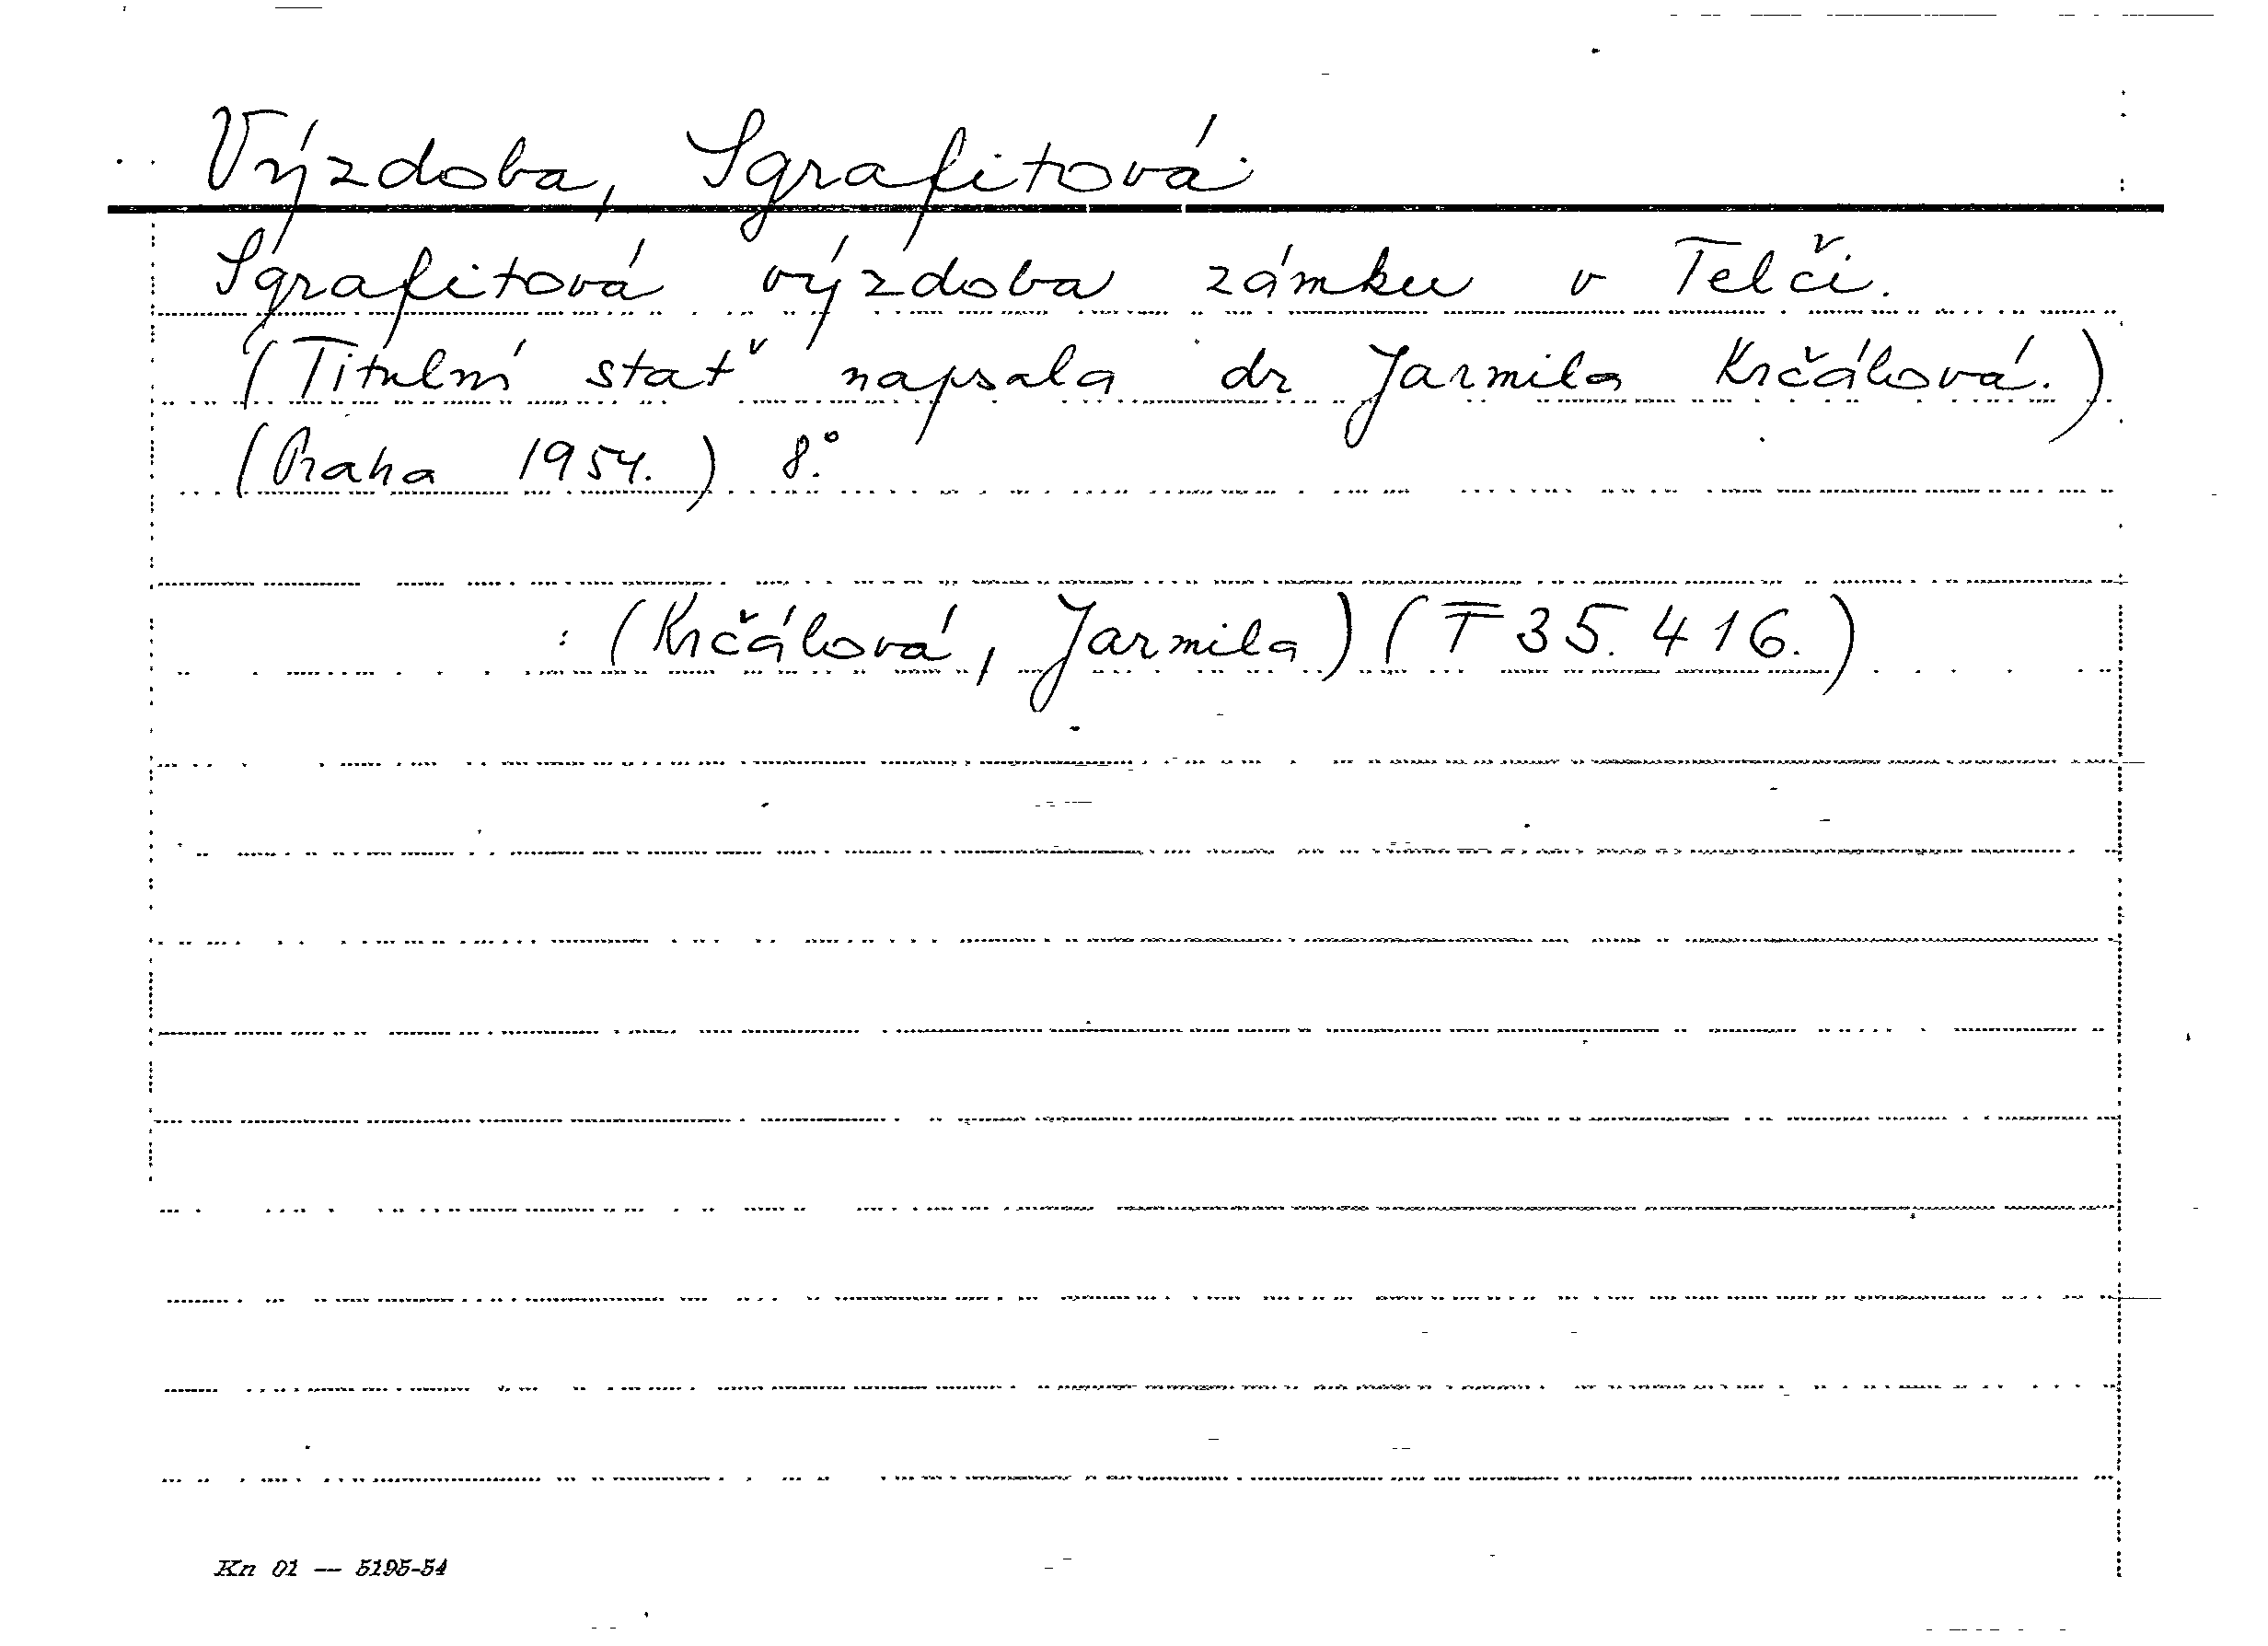 Výzdoba, Sgrafitová
Sgrafitová výzdoba zámku v Telči.
(Titulní stať napsala dr Jarmila Krčálová.)
(Praha 1954.) 8.°
: (Krčálová, Jarmila) (T 35.416.)
Kn 01 — 5195-54